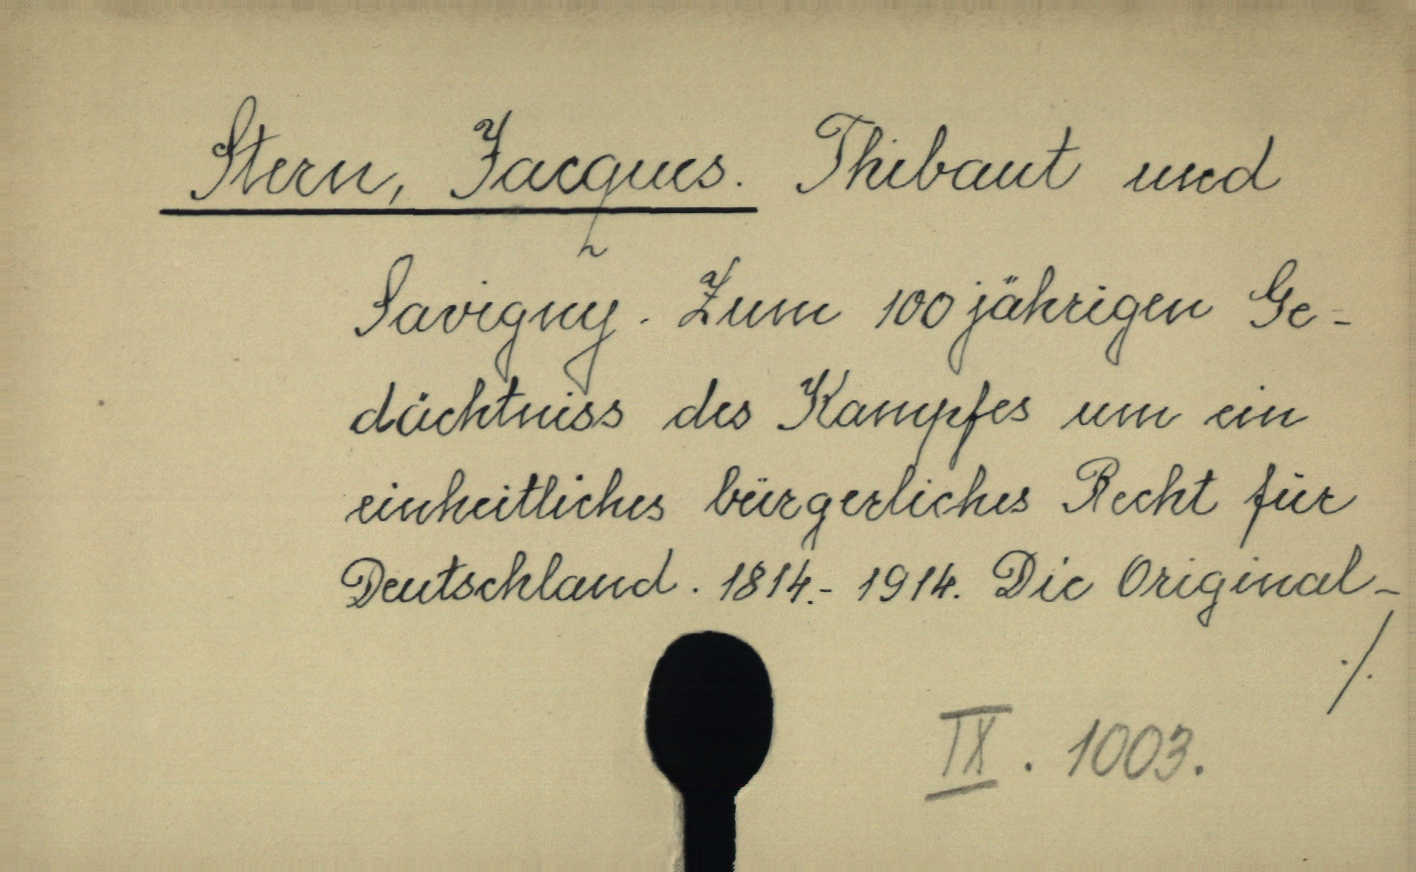 Stern, Jacques. Thibaut und
Savigny. Zum 100 jährigen Ge-
dächtniss des Kampfes um ein
einheitliches bürgerliches Recht für
Deutschland. 1814.- 1914. Die Original-
./.
IX. 1003.